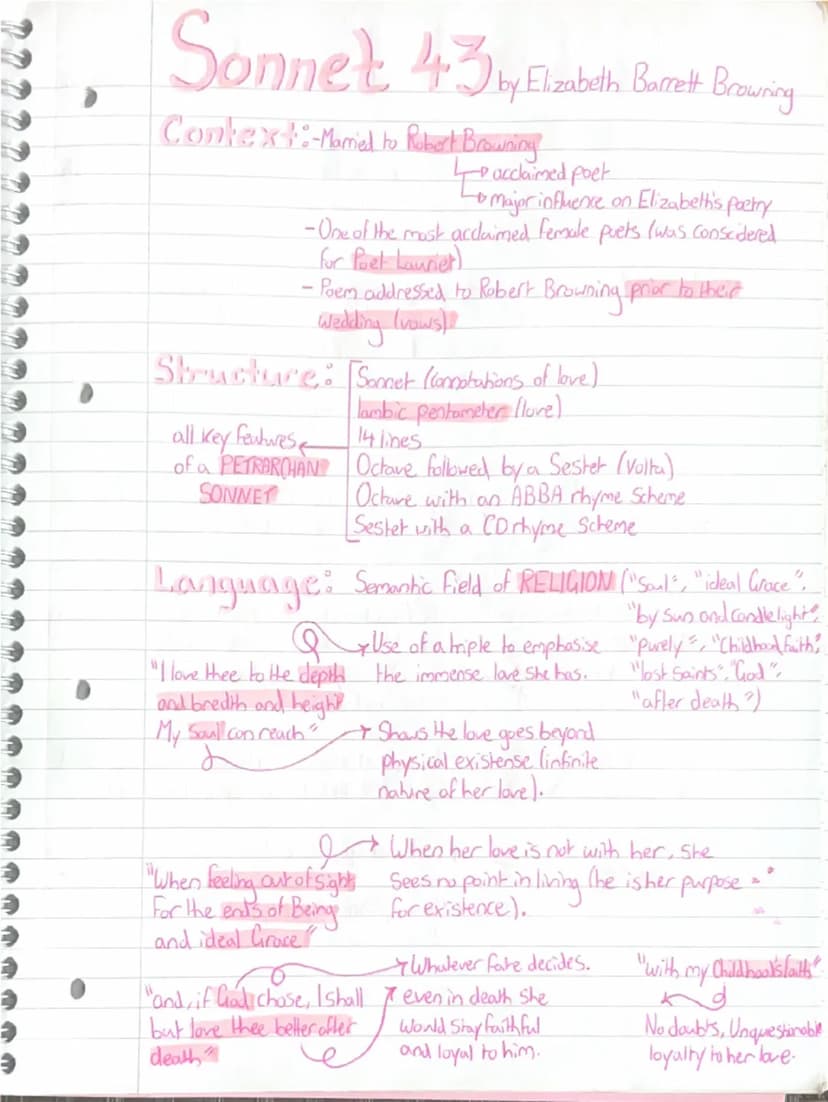 Sonnet 43 by Elizabeth Barrett Browning
Context:-Married to Robert Browning
acclaimed poet
major influence on Elizabeth's poetry
- One of the most acclaimed female poets (was considered
for Poet Lauriet)
- Poem addressed to Robert Browning prior to their
wedding (vows).
Structure:
Sonnet (connotations of love)
Iambic pentameter (love)
14 lines
Octave followed by a Sestet (Volta)
Octave with an ABBA rhyme scheme
Sestet with a CD rhyme scheme
all key features
of a PETRARCHAN
SONNET
Language: Semantic field of RELIGION ("Soul", "ideal Grace",
"by sun and candlelight",
"purely", "Childhood faith",
"lost saints", "God",
"after death")
Use of a triple to emphasise
the immense love she has.
"I love thee to the depth
and bredth and height
My Soul can reach"
Shows the love goes beyond
physical existense (infinite
nature of her love).
When her love is not with her, she
sees no point in living (he is her purpose
for existence).
"When feeling out of sight
For the ents of Being
and ideal Grace"
Whatever fate decides.
even in death she
would stay faithful
and loyal to him.
"and, if God chose, I shall
but love thee better after
death"
"with my Childhood's faith"
No doubts, Unquestionable
loyalty to her love.